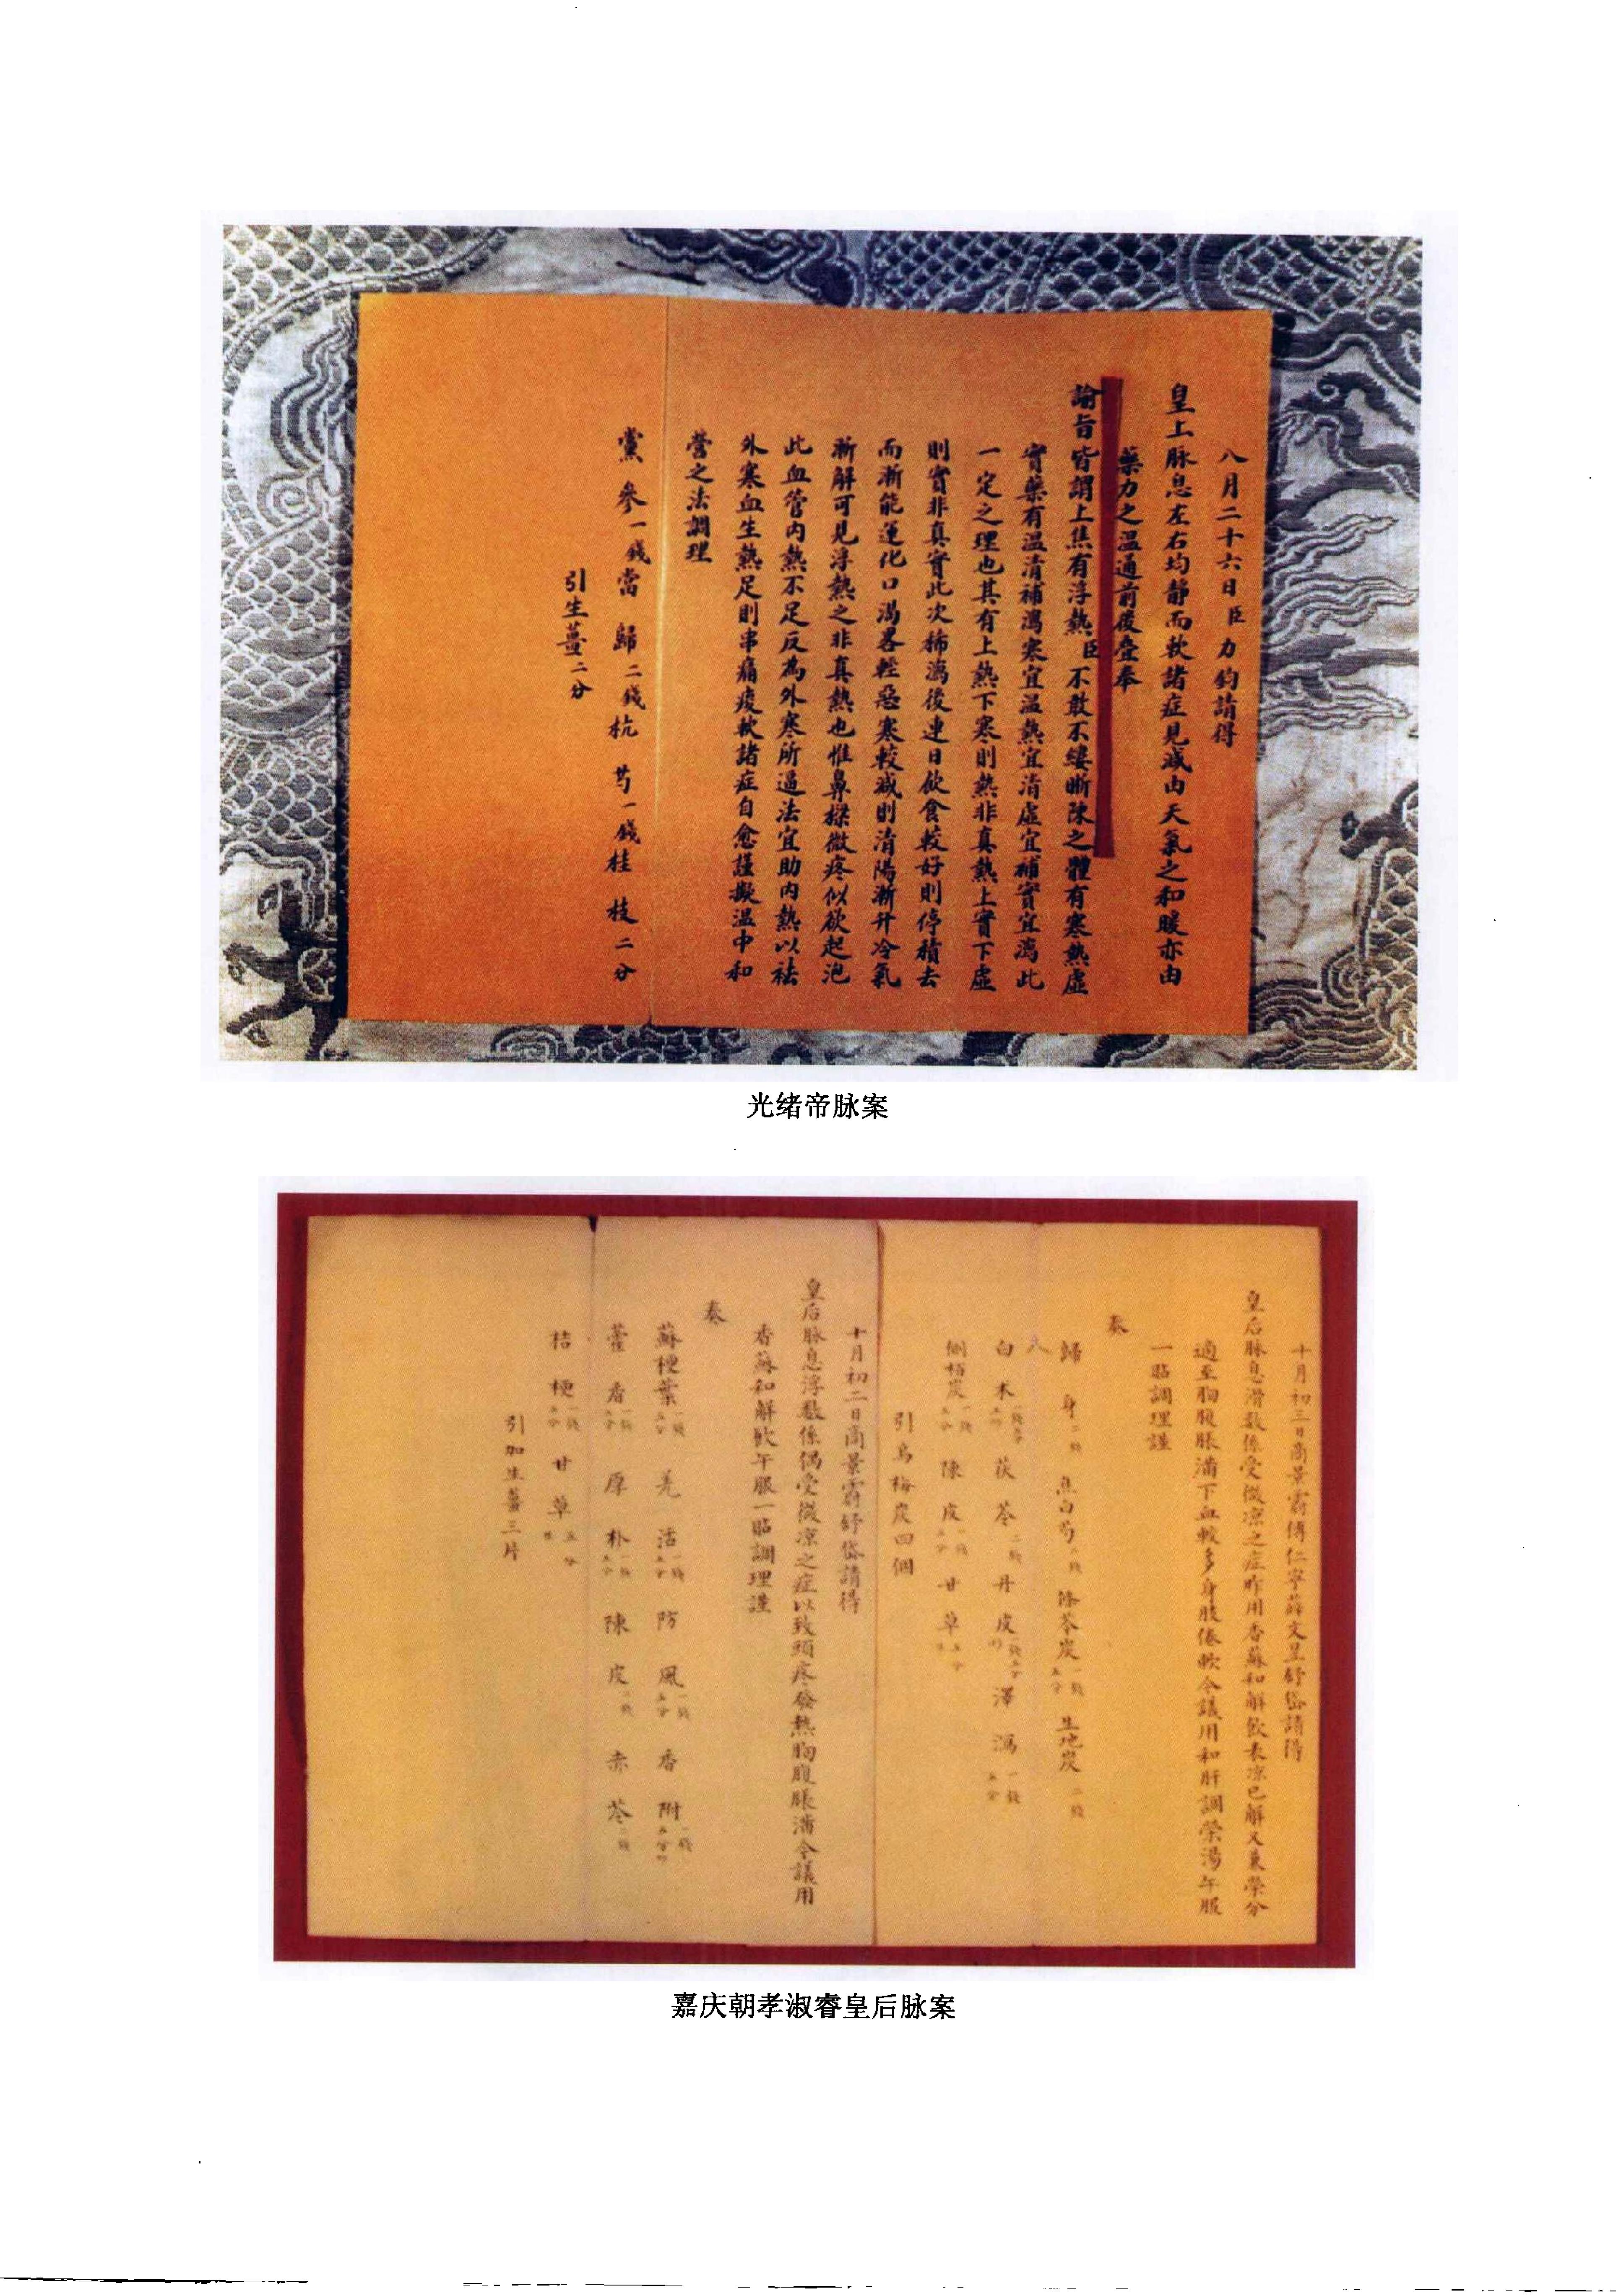 八月二十六日臣力鈞請得
皇上脉息左右均靜而軟諸症見減由天氣之和暖亦由
藥力之温通前後疊奉
諭旨皆謂上焦有浮熱臣不敢不縷晰陳之體有寒熱虛
實藥有温清補瀉寒宜温熱宜清虛宜補實宜瀉此
一定之理也其有上熱下寒則熱非真熱上實下虛
則實非真實此次稀瀉後連日飲食較好則停積去
而漸能運化口渴畧輕惡寒較減則清陽漸升冷氣
漸解可見浮熱之非真熱也惟鼻樑微疼似欲起泡
此血管内熱不足反為外寒所逼法宜助内熱以祛
外寒血生熱足則串痛痠軟諸症自愈謹擬温中和
營之法調理
黨參一錢當歸二錢杭芍一錢桂枝二分
引生薑二分
光绪帝脉案
十月初三日商景霨傅仁寧薛文昱舒岱請得
皇后脉息滑数係受微凉之症昨用香蘇和解飲表凉已解又兼榮分
適至胸腹脹滿下血較多身肢倦軟今議用和肝調榮湯午服
一貼調理謹
奏
歸身二錢焦白芍二錢條芩炭一錢五分生地炭二錢
八
白术一錢五分茯苓二錢丹皮一錢五分澤瀉一錢五分
側栢炭一錢五分陳皮一錢五分甘草五分
引烏梅炭四個
十月初二日商景霨舒岱請得
皇后脉息浮数係偶受微凉之症以致頭疼發熱胸腹脹滿今議用
香蘇和解飲午服一貼調理謹
奏
蘇梗葉一錢五分羌活一錢五分防風一錢五分香附一錢五分
藿香一錢五分厚朴一錢五分陳皮二錢赤苓二錢
桔梗一錢五分甘草五分
引加生薑三片
嘉庆朝孝淑睿皇后脉案